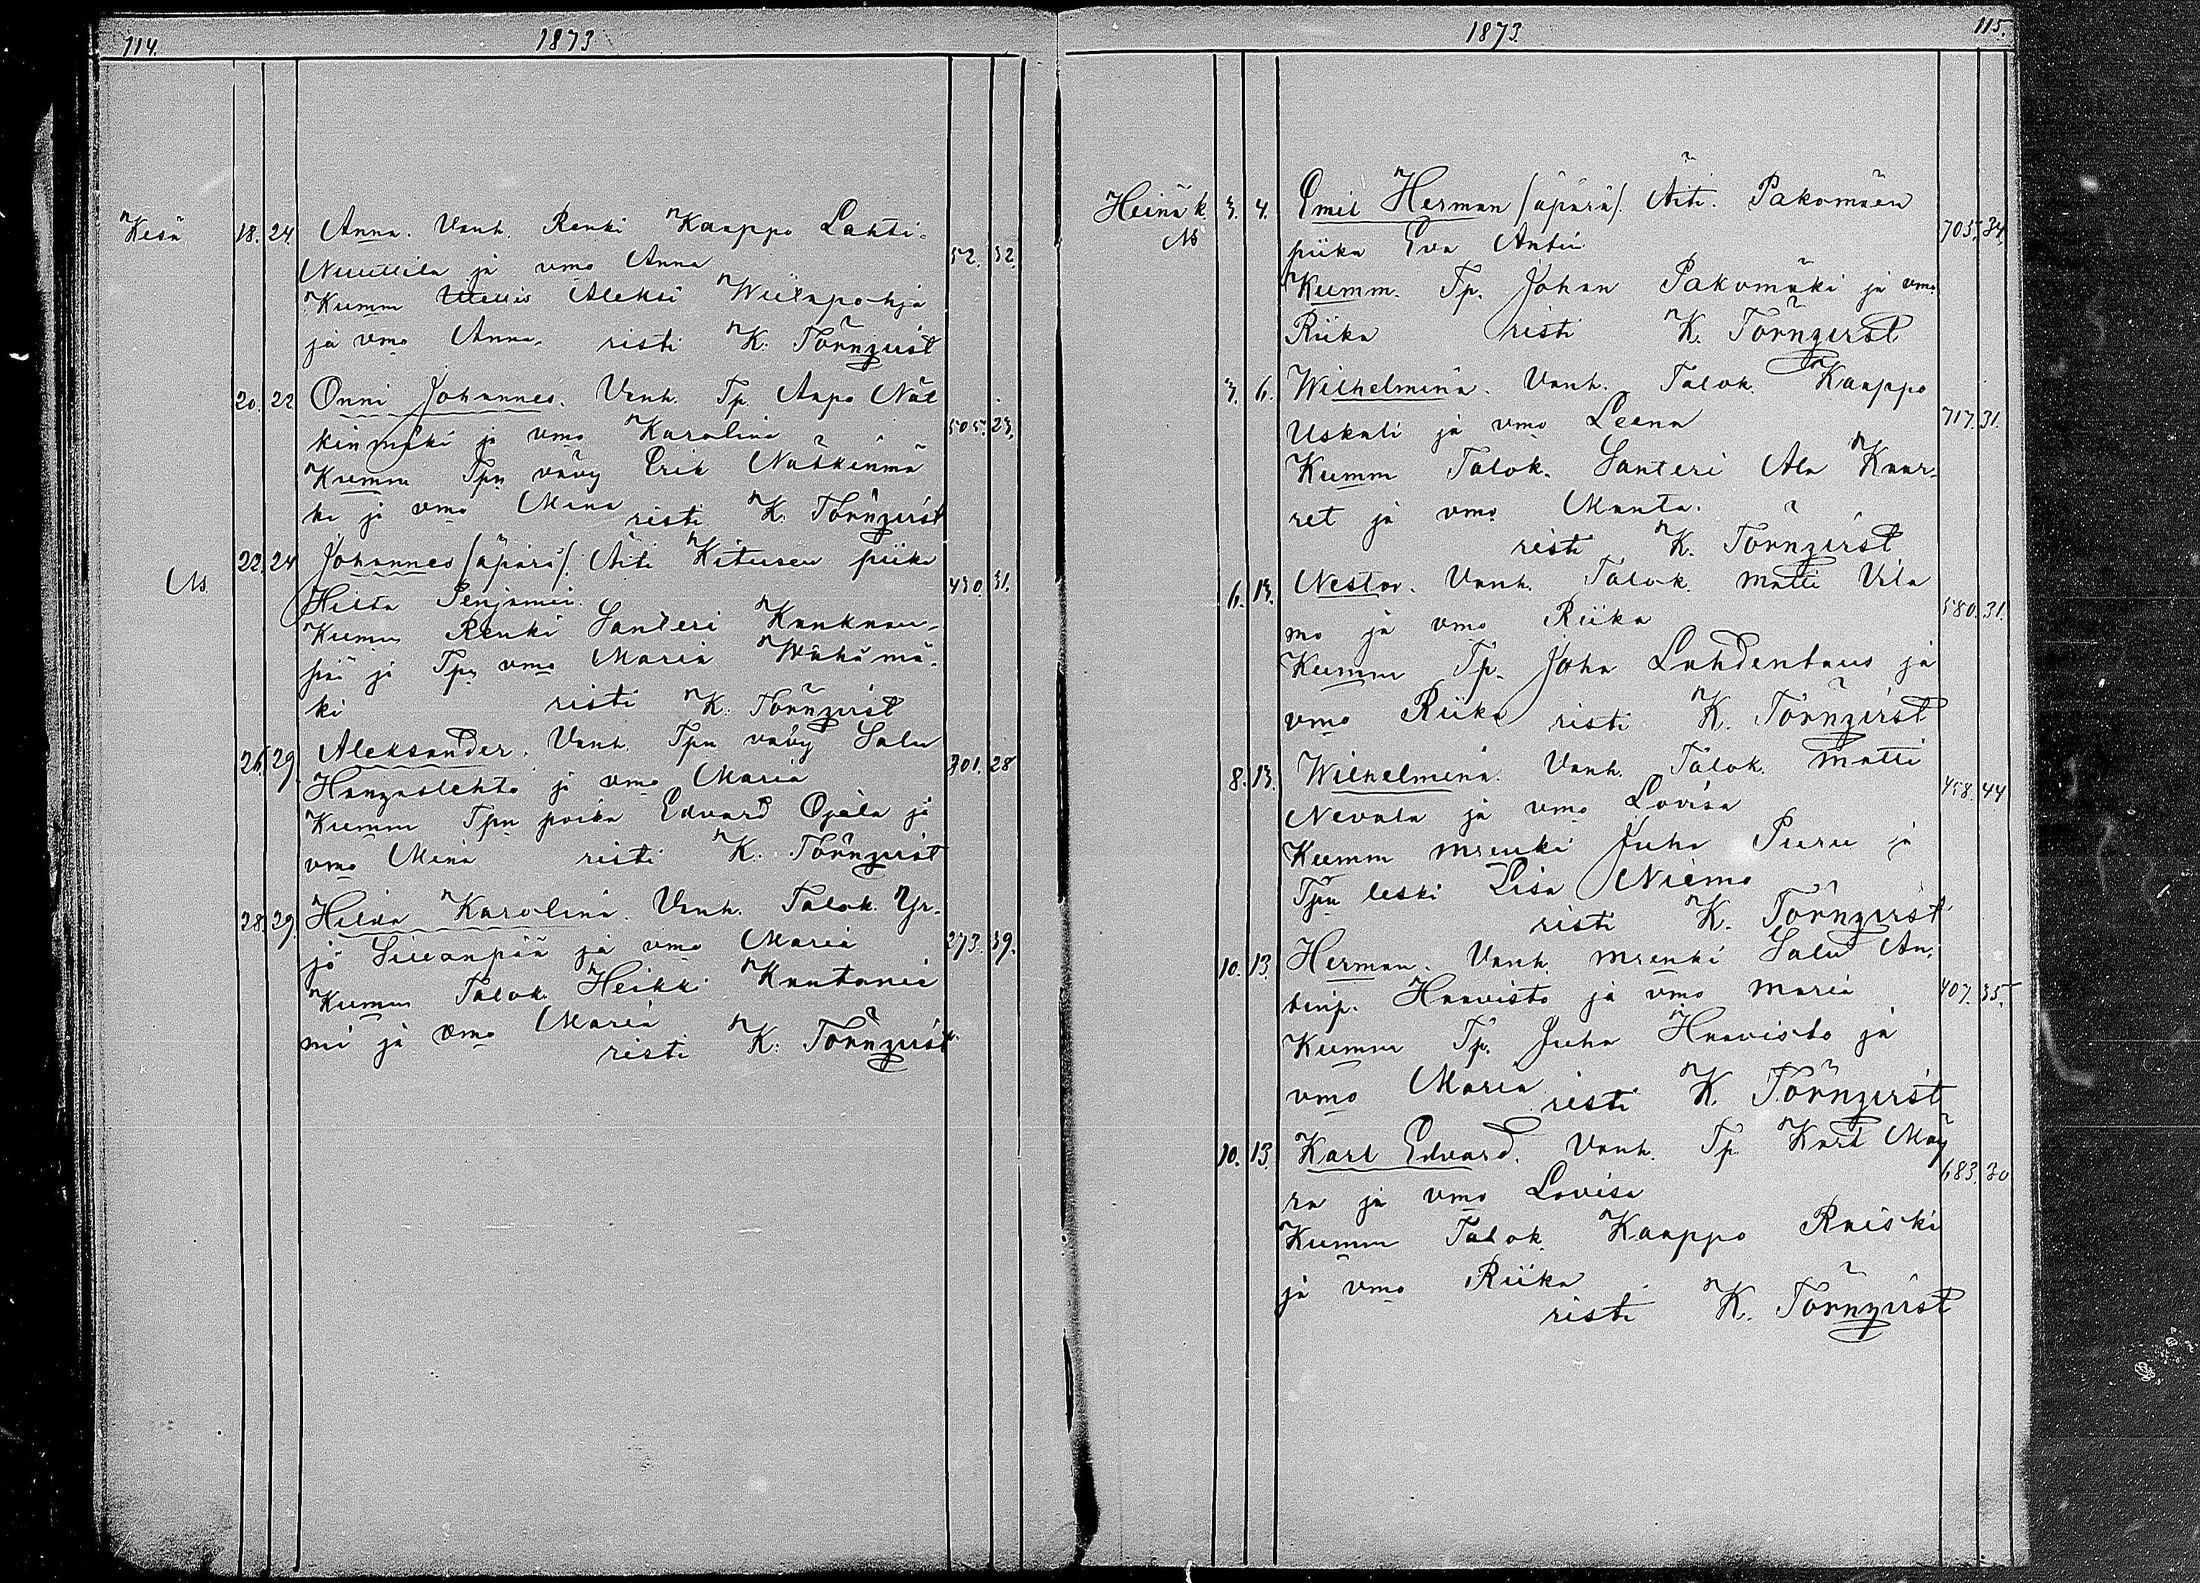 114. 1873
Kesä 18. 24. Anna. Vanh. Renki Kaappo Lahti-
Nuuttila ja vmo Anna 52. 32.
Kumm Aleksi Wiitapohja
ja vmo Anna. risti K. Törnqvist
20. 22 Onni Johannes. Vanh. Tp. Aapo Nät
kinmäki ja vmo Karolina 505. 23.
Kumm Tpn vävy Erik Nätkinmä
ki ja vmo Mina risti K. Törnqvist
Ns. 22. 24 Johannes (äpärä). Äiti Kitusen piika
Hilta Penjamin. 430. 31.
Kumm Renki Santeri Kankaan-
pää ja Tpn vmo Maria Wähämä-
ki risti K. Törnqvist
26. 29. Aleksander. Vanh. Tpn vävy Salu
Haapalehto ja vmo Maria 301. 28
Kumm Tpn poika Edvard Ojala ja
vmo Mina risti K. Törnqvist
28. 29. Hilda Karolina. Vanh. Talok. Yr-
jö Sillanpää ja vmo Maria 273. 39.
Kumm Talok. Heikki Kautonie
mi ja vmo Maria
risti K. Törnqvist.
1873. 115.
Heinäk. 3. 4. Emil Herman (äpärä). Äiti. Pakomäen
Ns piika Eva Antin 705. 34.
Kumm. Tp. Johan Pakomäki ja vmo
Riika risti K. Törnqvist
3. 6. Wilhelmina. Vanh. Talok. Kaappo
Uskali ja vmo Leena 717. 31.
Kumm Talok. Santeri Ala Knar-
ret ja vmo Manta.
risti K. Törnqvist
6. 13. Nestor. Vanh. Talok. Matti Vila
mo ja vmo Riika 580. 31.
Kumm Tp. Joha Lahdentaus ja
vmo Riika risti K. Törnqvist
8. 13. Wilhelmina. Vanh. Talok. Matti
Nevala ja vmo Lovisa 458. 44
Kumm mrenki Juha Puru ja
Tpn leski Lisa Niemo
risti K. Törnqvist
10. 13. Herman. Vanh. mrenki Salu An-
tinp. Haavisto ja vmo Maria 407. 35.
Kumm Tp. Juha Haavisto ja
vmo Maria risti K. Törnqvist
10. 13. Karl Edvard. Vanh. Tp. Karl Mäy
ra ja vmo Lovisa 683. 30
Kumm Talok. Kaappo Raiski
ja vmo Riika
risti K. Törnqvist